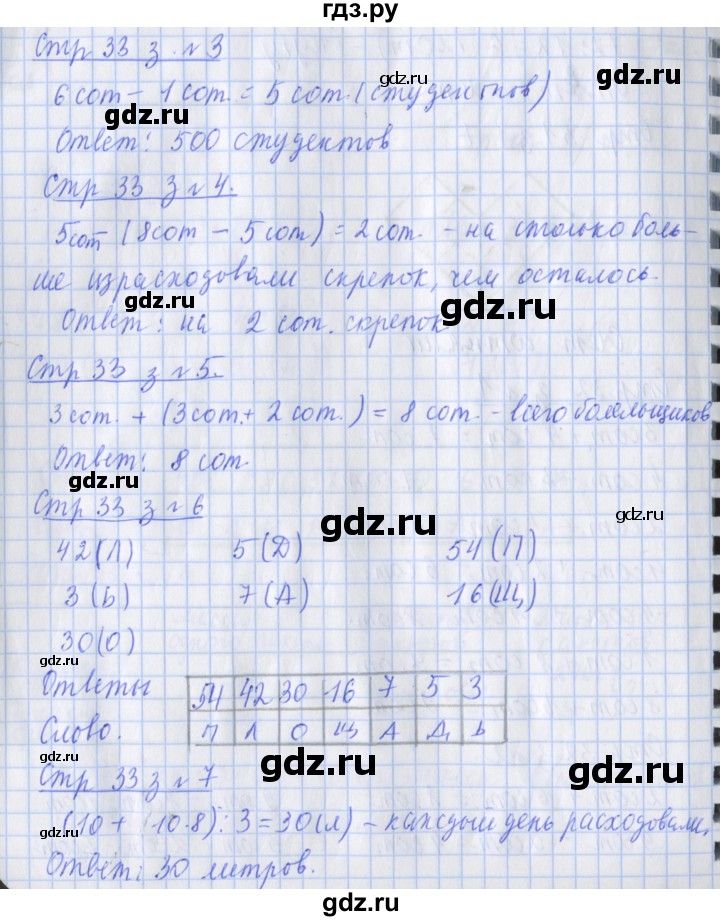 гдз.ру
Стр 33 з. №3
6 сот – 1 сот. = 5 сот. (студентов)
gdz.ru
gdz.ru
Ответ: 500 студентов
Стр 33 з №4.
gdz.ru
gdz.ru
5 сот – (8 сот – 5 сот) = 2 сот. – на столько боль-
ше израсходовали скрепок, чем осталось.
gdz.ru
gdz.ru
Ответ: на 2 сот. скрепок
Стр 33 з №5.
gdz.ru
3 сот. + (3 сот. + 2 сот.) = 8 сот. – всего болельщиков
Ответ: 8 сот.
gdz.ru
Стр 33 з №6
gdz.ru
gdz.ru
42 (Л) 5 (Д) 54 (П)
3 (Ь) 7 (А) 16 (Щ)
30 (О)
gdz.ru
Ответы 54 42 30 16 7 5 3
Слово. П Л О Щ А Д Ь
gdz.ru
gdz.ru
Стр 33 з №7
gdz.ru
(10 + 10·8) : 3 = 30 (л) – каждый день расходовали.
gdz.ru
Ответ: 30 литров.
gdz.ru
gdz.ru